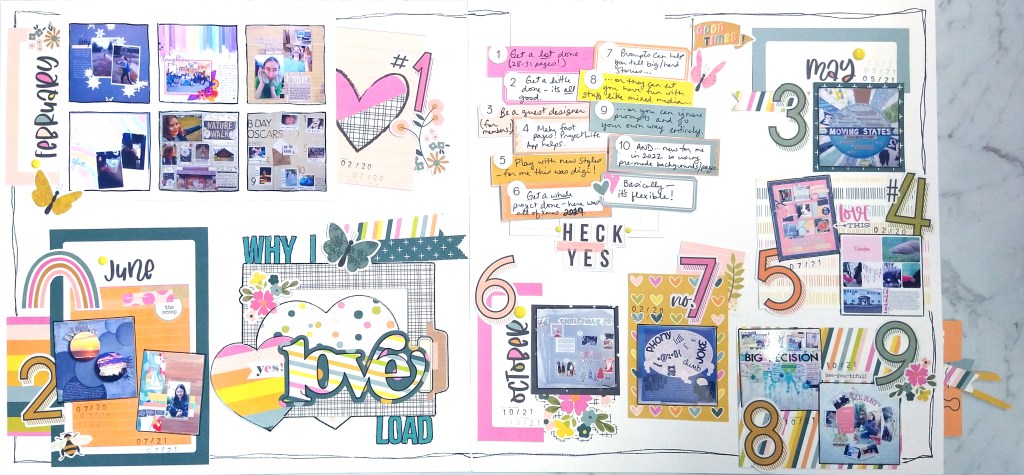 FEBRUARY
NATURE
WALK
3 DAY
OSCARS
#1
02/20
1 Get a lot done
(28-31 pages!)
2 Get a little
done - its all
good.
3 Be a guest designer
(for
members)
4 Make fast
pages! Project Life
App helps.
5 Play with new styles
- for me this was digi!
6 Get a whole
project done - here was
all of xmas 2019
7 Prompts can help
you tell big/hard
stories...
8 ...or they can let
you have fun with
stuff like mixed media...
9 ...or you can ignore
prompts and go
your own way entirely
10 AND... new for me
in 2022 is using
pre-made backgrounds/pages
Basically -
it's flexible!
HECK
YES
GOOD
TIMES
MAY
05/21
3
MOVING STATES
#4
love
THIS
02/21
5
JUNE
the
scoop
2
07/20
07/21
WHY I
love
yes!
LOAD
6
OCTOBER
CHRISTMAS
10/21
7
no.
02/21
PHONY
JOKE
BIG DECISION
8
9
bee-you-tiful!